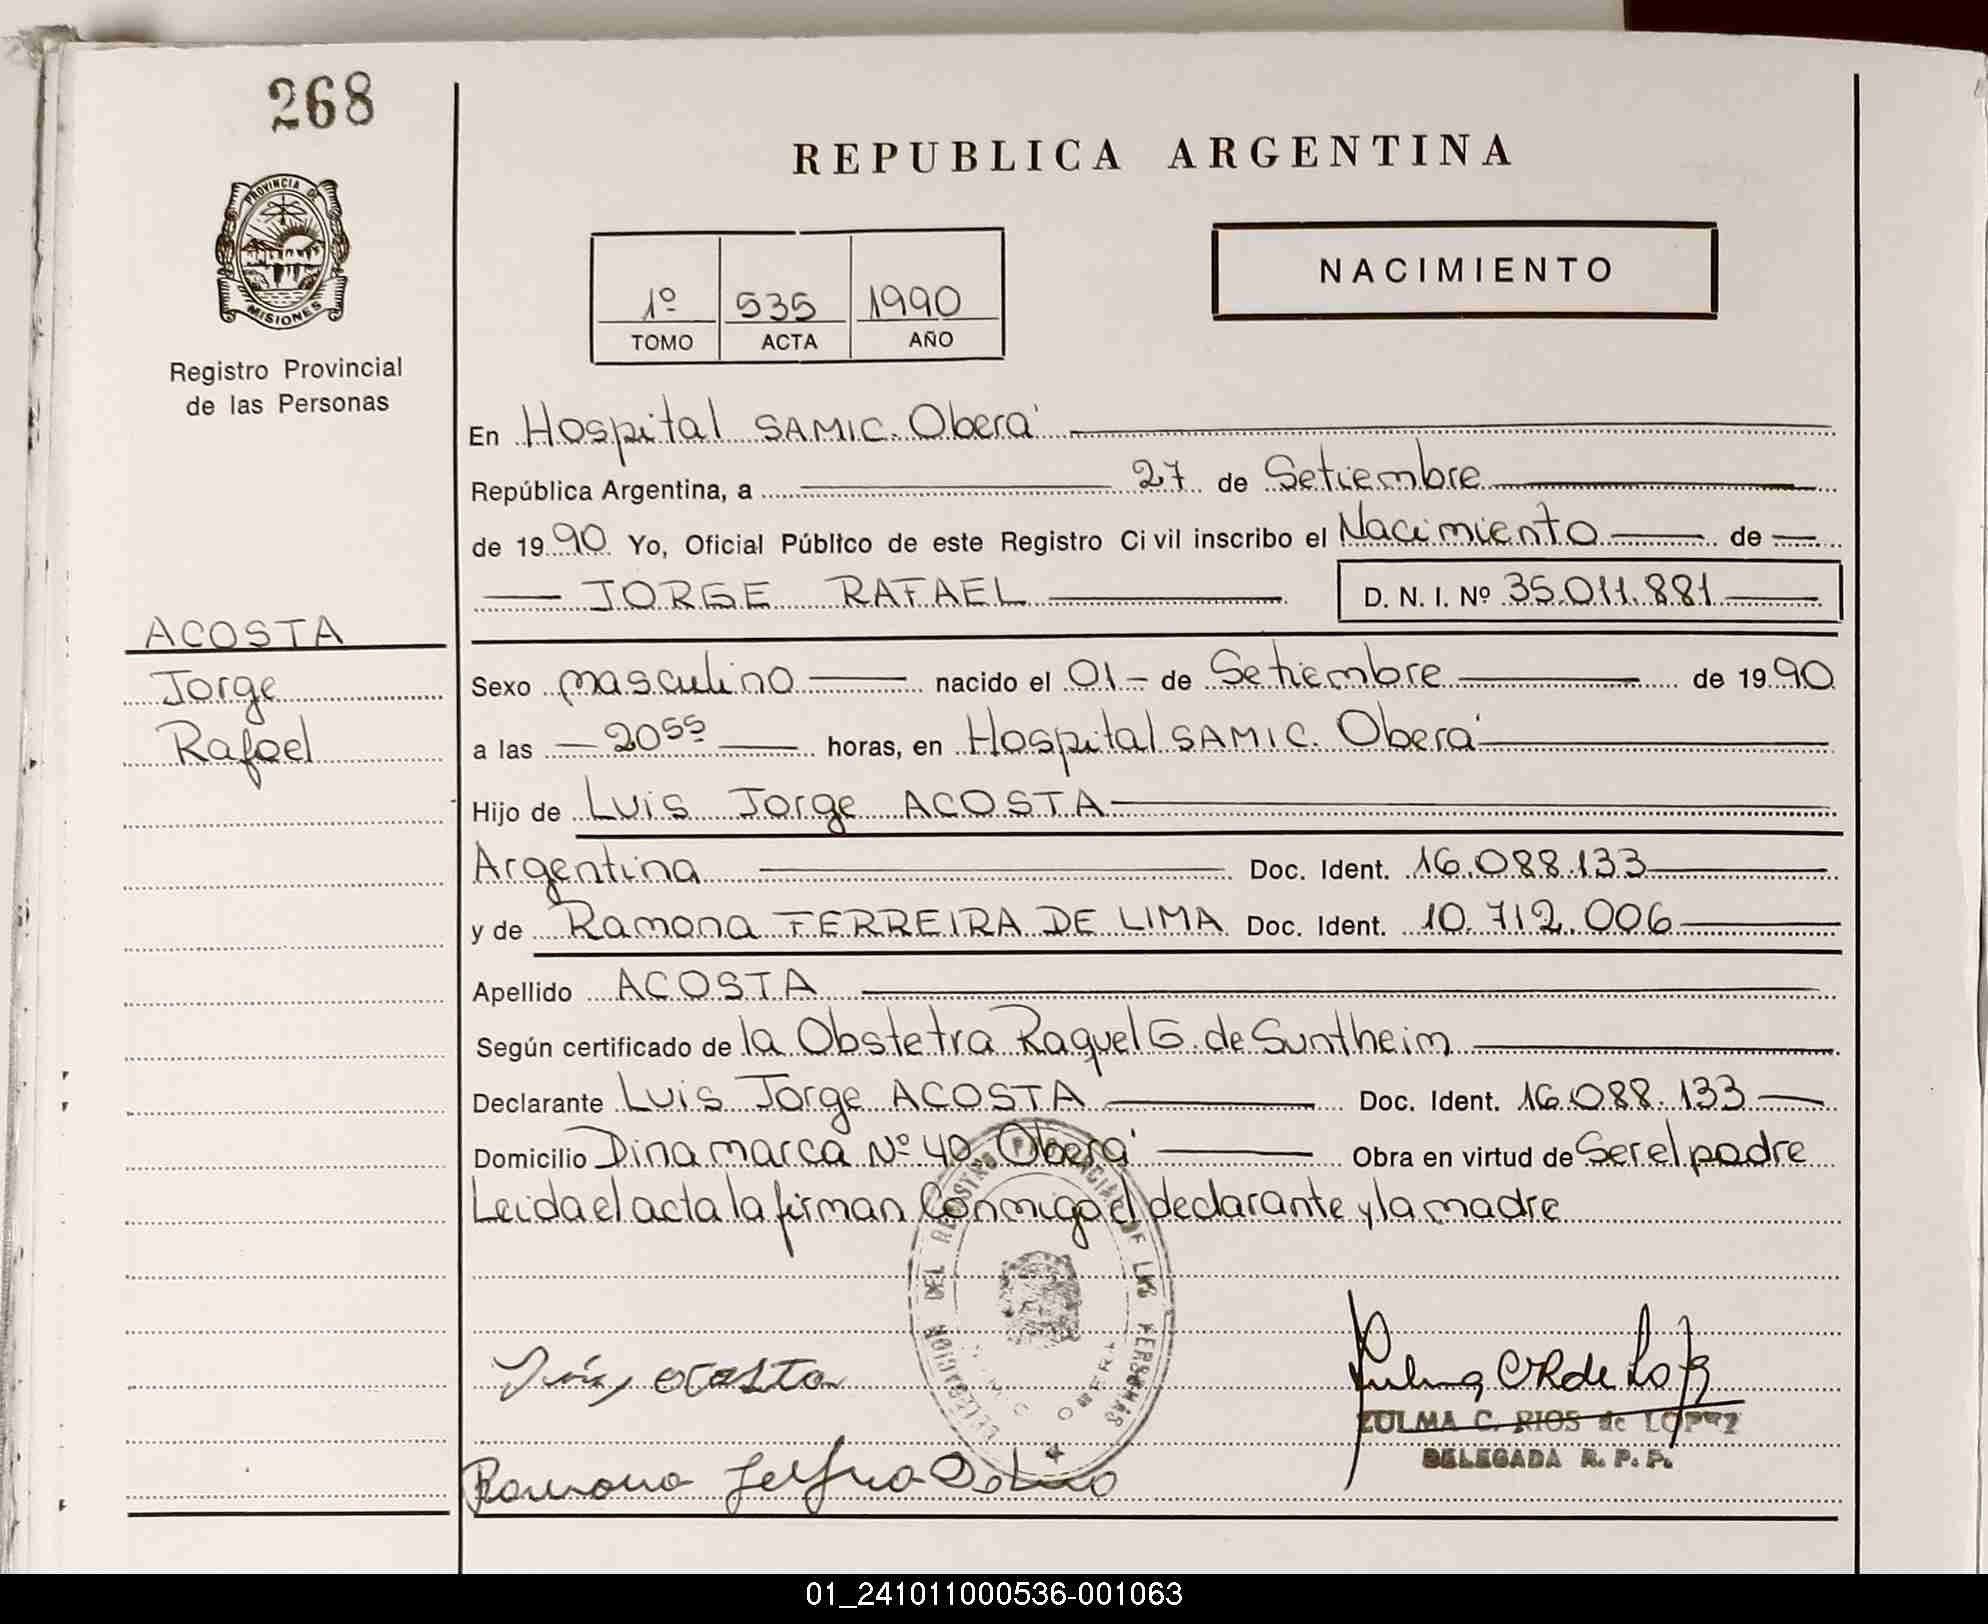 268
REPUBLICA ARGENTINA
PROVINCIA DE
MISIONES
Registro Provincial
de las Personas
1º 535 1990
TOMO ACTA AÑO
NACIMIENTO
En Hospital SAMIC. Oberá
República Argentina, a 27 de Setiembre
de 1990 Yo, Oficial Público de este Registro Civil inscribo el Nacimiento de
JORGE RAFAEL D. N. I. Nº 35.011.881
ACOSTA
Jorge
Rafael
Sexo masculino nacido el 01 - de Setiembre de 1990
a las 20⁵⁵ horas, en Hospital SAMIC. Oberá
Hijo de Luis Jorge ACOSTA
Argentina Doc. Ident. 16.088.133
y de Ramona FERREIRA DE LIMA Doc. Ident. 10.712.006
Apellido ACOSTA
Según certificado de la Obstetra Raquel G. de Suntheim
Declarante Luis Jorge ACOSTA Doc. Ident. 16.088.133
Domicilio Dinamarca Nº 40. Oberá Obra en virtud de Ser el padre
Leida el acta la firman Conmigo el declarante y la madre
DELEGACION DEL REGISTRO PROVINCIAL DE LAS PERSONAS
OBERA
ZULMA C. RIOS de LOPEZ
DELEGADA R. P. P.
Ramona
01_241011000536-001063